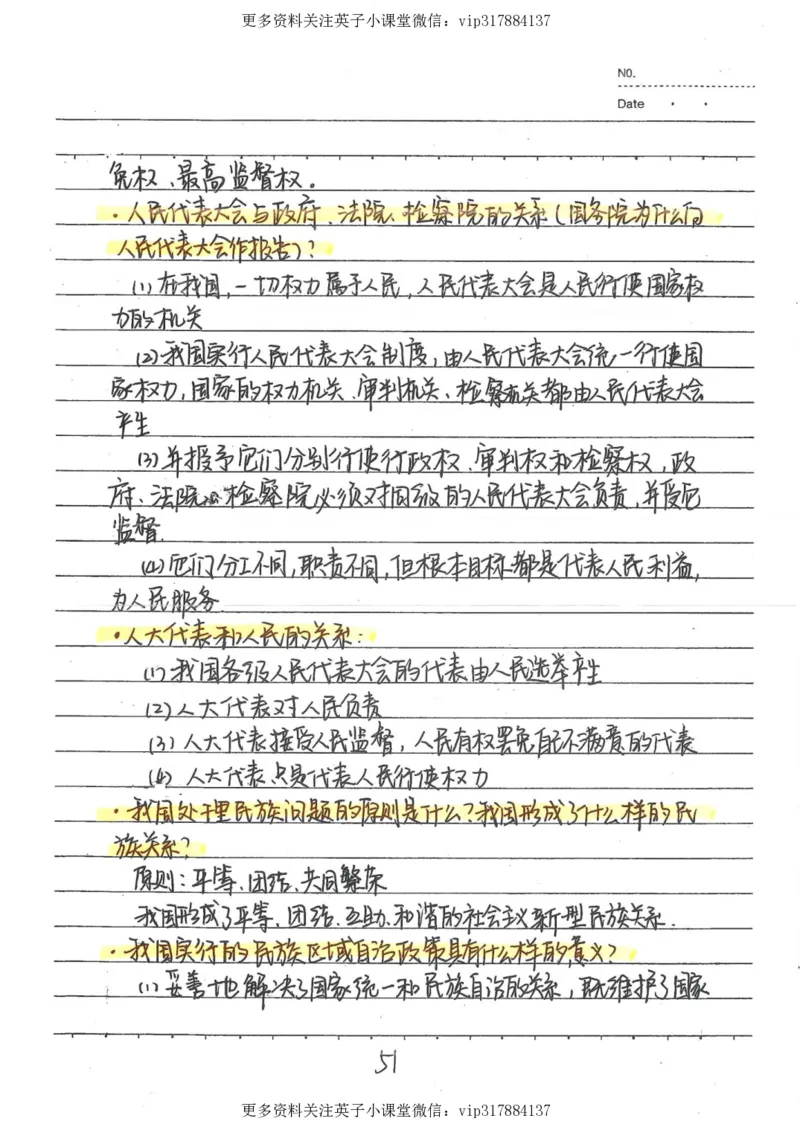 更多资料关注英子小课堂微信：vip317884137
NO.
Date
免权、最高监督权。
·人民代表大会与政府、法院、检察院的关系（国务院为什么向
人民代表大会作报告）？
(1)在我国,一切权力属于人民,人民代表大会是人民行使国家权
力的机关
(2)我国实行人民代表大会制度,由人民代表大会统一行使国
家权力,国家的权力机关、审判机关、检察机关都由人民代表大会
产生
(3)并授予它们分别行使行政权、审判权和检察权,政
府、法院 检察院必须对同级的人民代表大会负责,并受它
监督.
(4)它们分工不同,职责不同,但根本目标都是代表人民利益,
为人民服务
·人大代表和人民的关系:
(1)我国各级人民代表大会的代表由人民选举产生
(2)人大代表对人民负责
(3)人大代表接受人民监督,人民有权罢免自己不满意的代表
(4)人大代表 是代表人民行使权力
·我国处理民族问题的原则是什么?我国形成了什么样的民
族关系?
原则:平等、团结、共同繁荣
我国形成了平等、团结、互助、和谐的社会主义新型民族关系.
·我国实行的民族区域自治政策具有什么样的意义?
(1)妥善地解决了国家统一和民族自治的关系,既维护了国家
51
更多资料关注英子小课堂微信：vip317884137